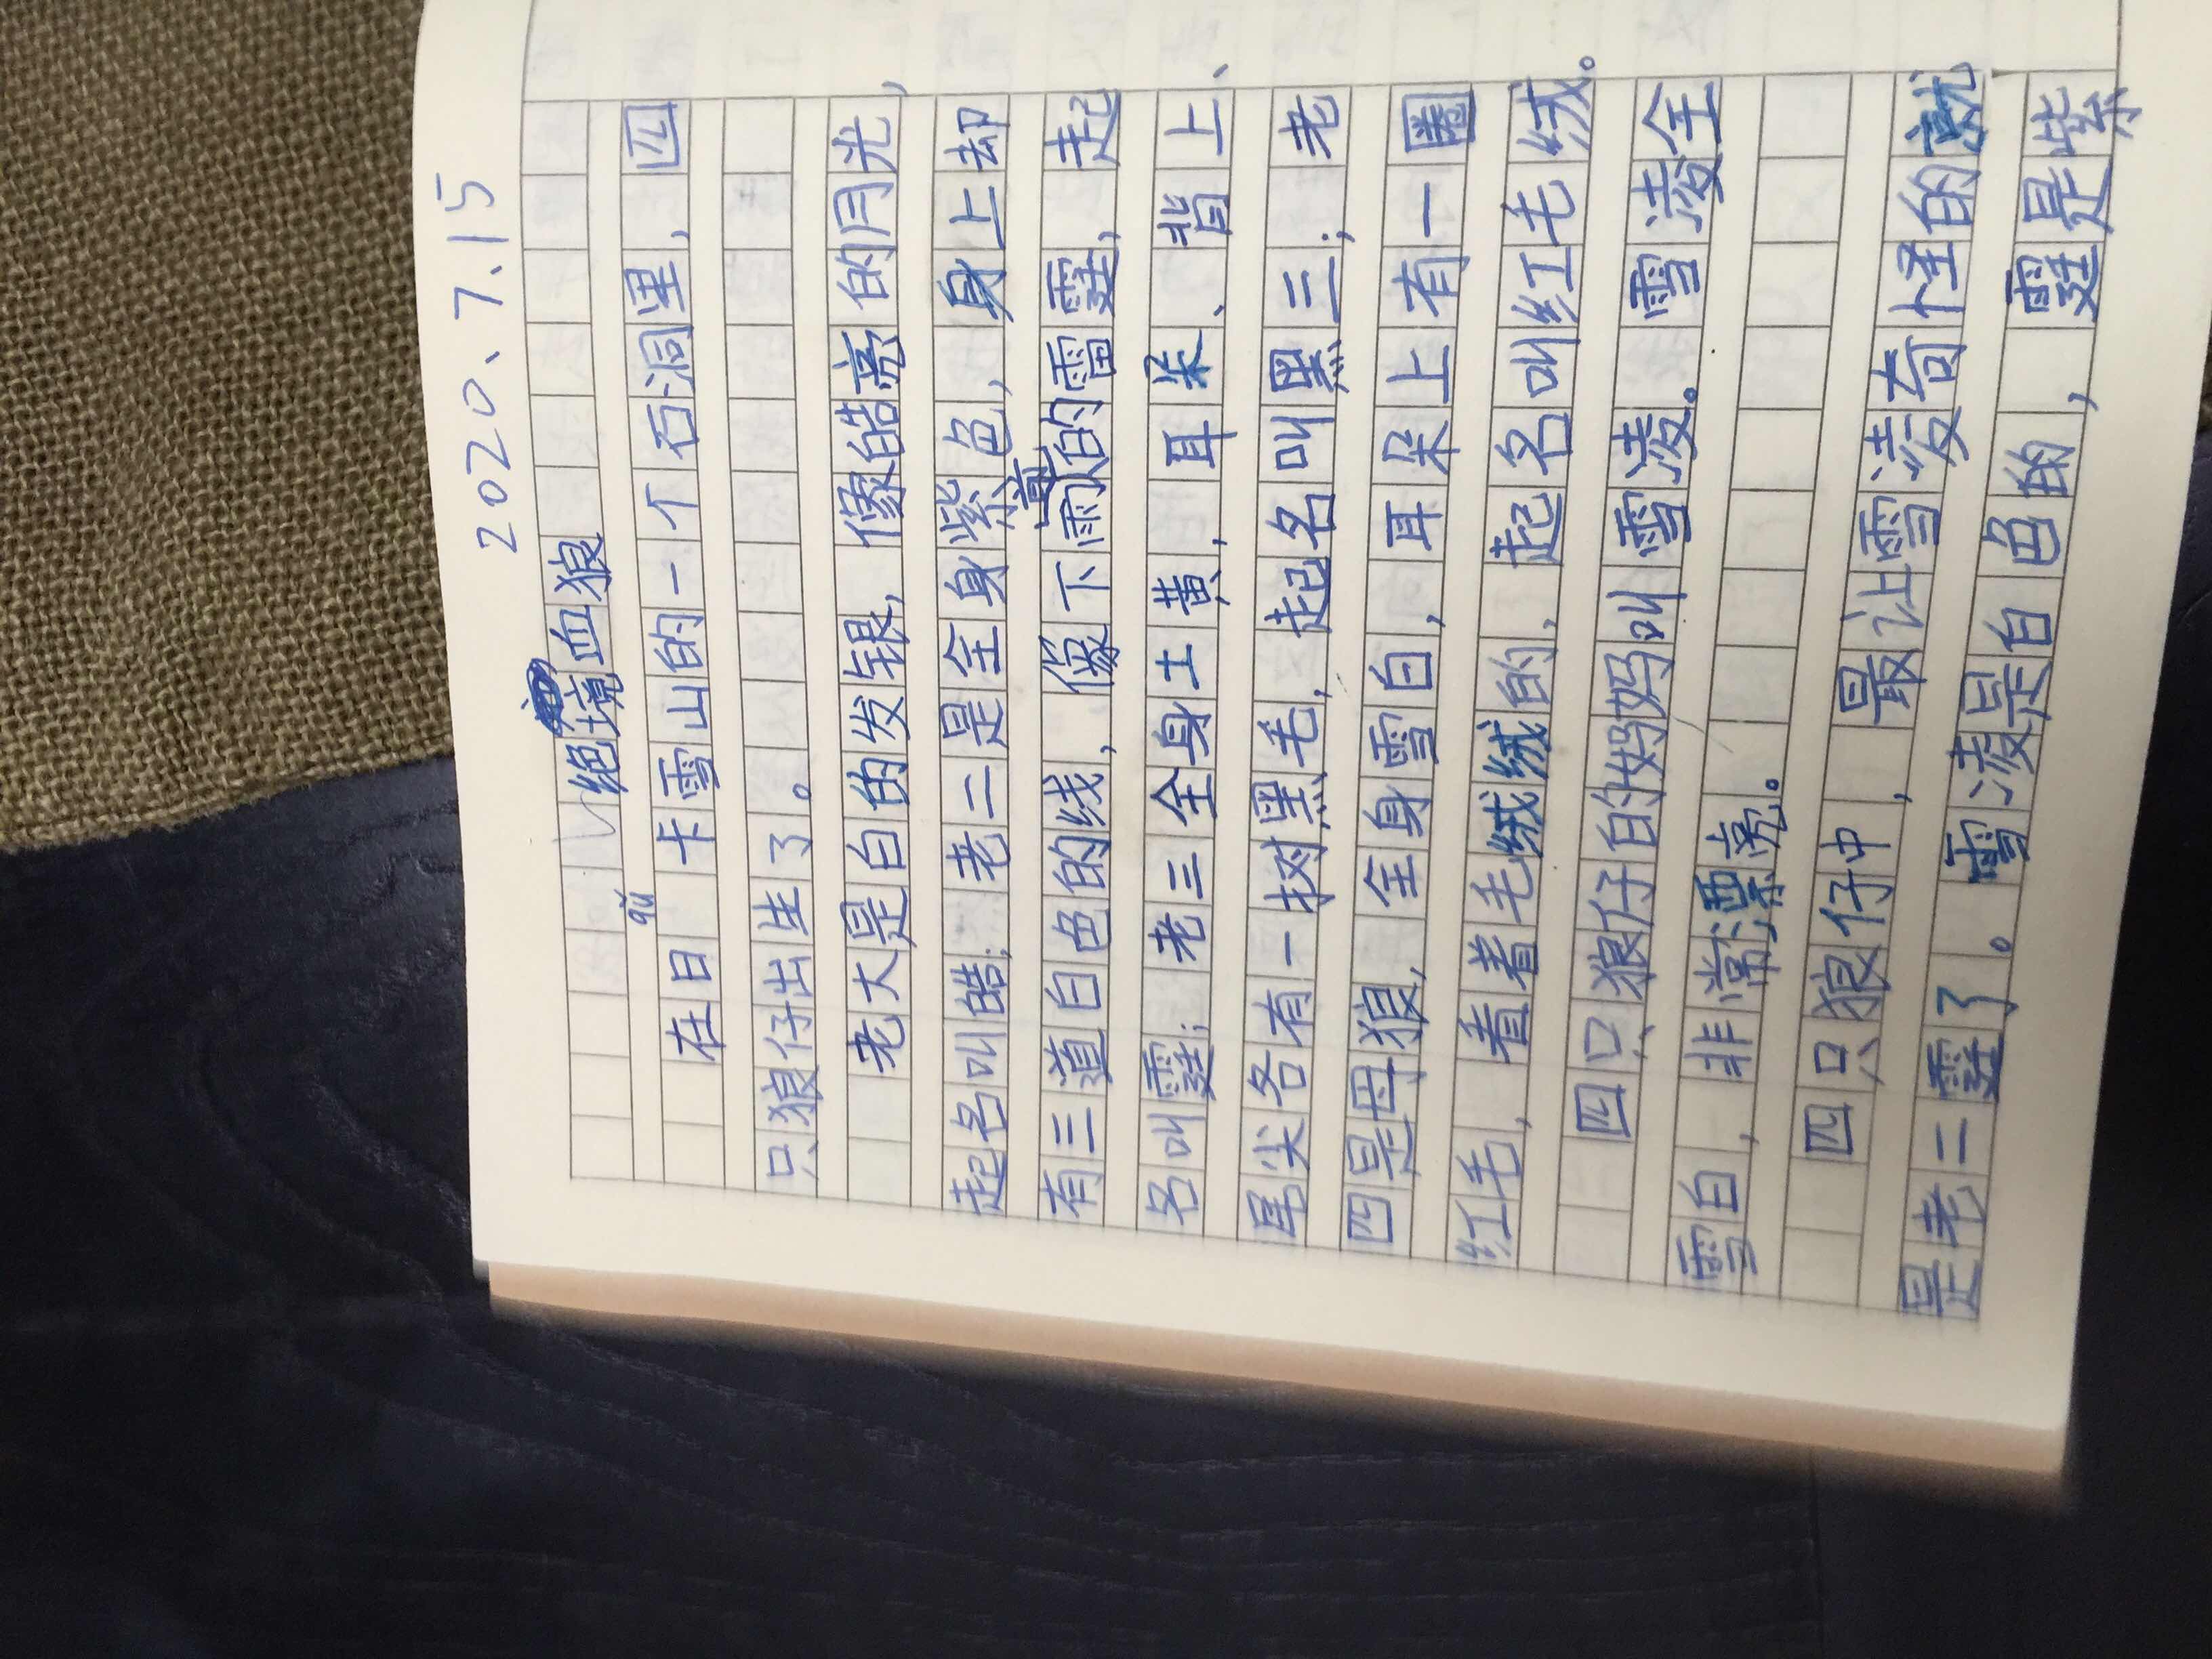 2020、7.15
绝境血狼
qū
在日 卡雪山的一个石洞里，四
只狼仔出生了。
老大是白的发银，像皓亮的月光，
起名叫皓；老二是全身紫色，身上却
有三道白色的线，像下雨的雷霆，起
名叫霆；老三全身土黄，耳朵、背上、
尾尖各有一撮黑毛，起名叫黑三；老
四是母狼，全身雪白，耳朵上有一圈
红毛，看着毛绒绒的，起名叫红毛绒。
四只狼仔的妈妈叫雪凌。雪凌全
雪白，非常漂亮。
四只狼仔中，最让雪凌奇怪的就
是老二霆了。雪凌是白色的，霆是紫